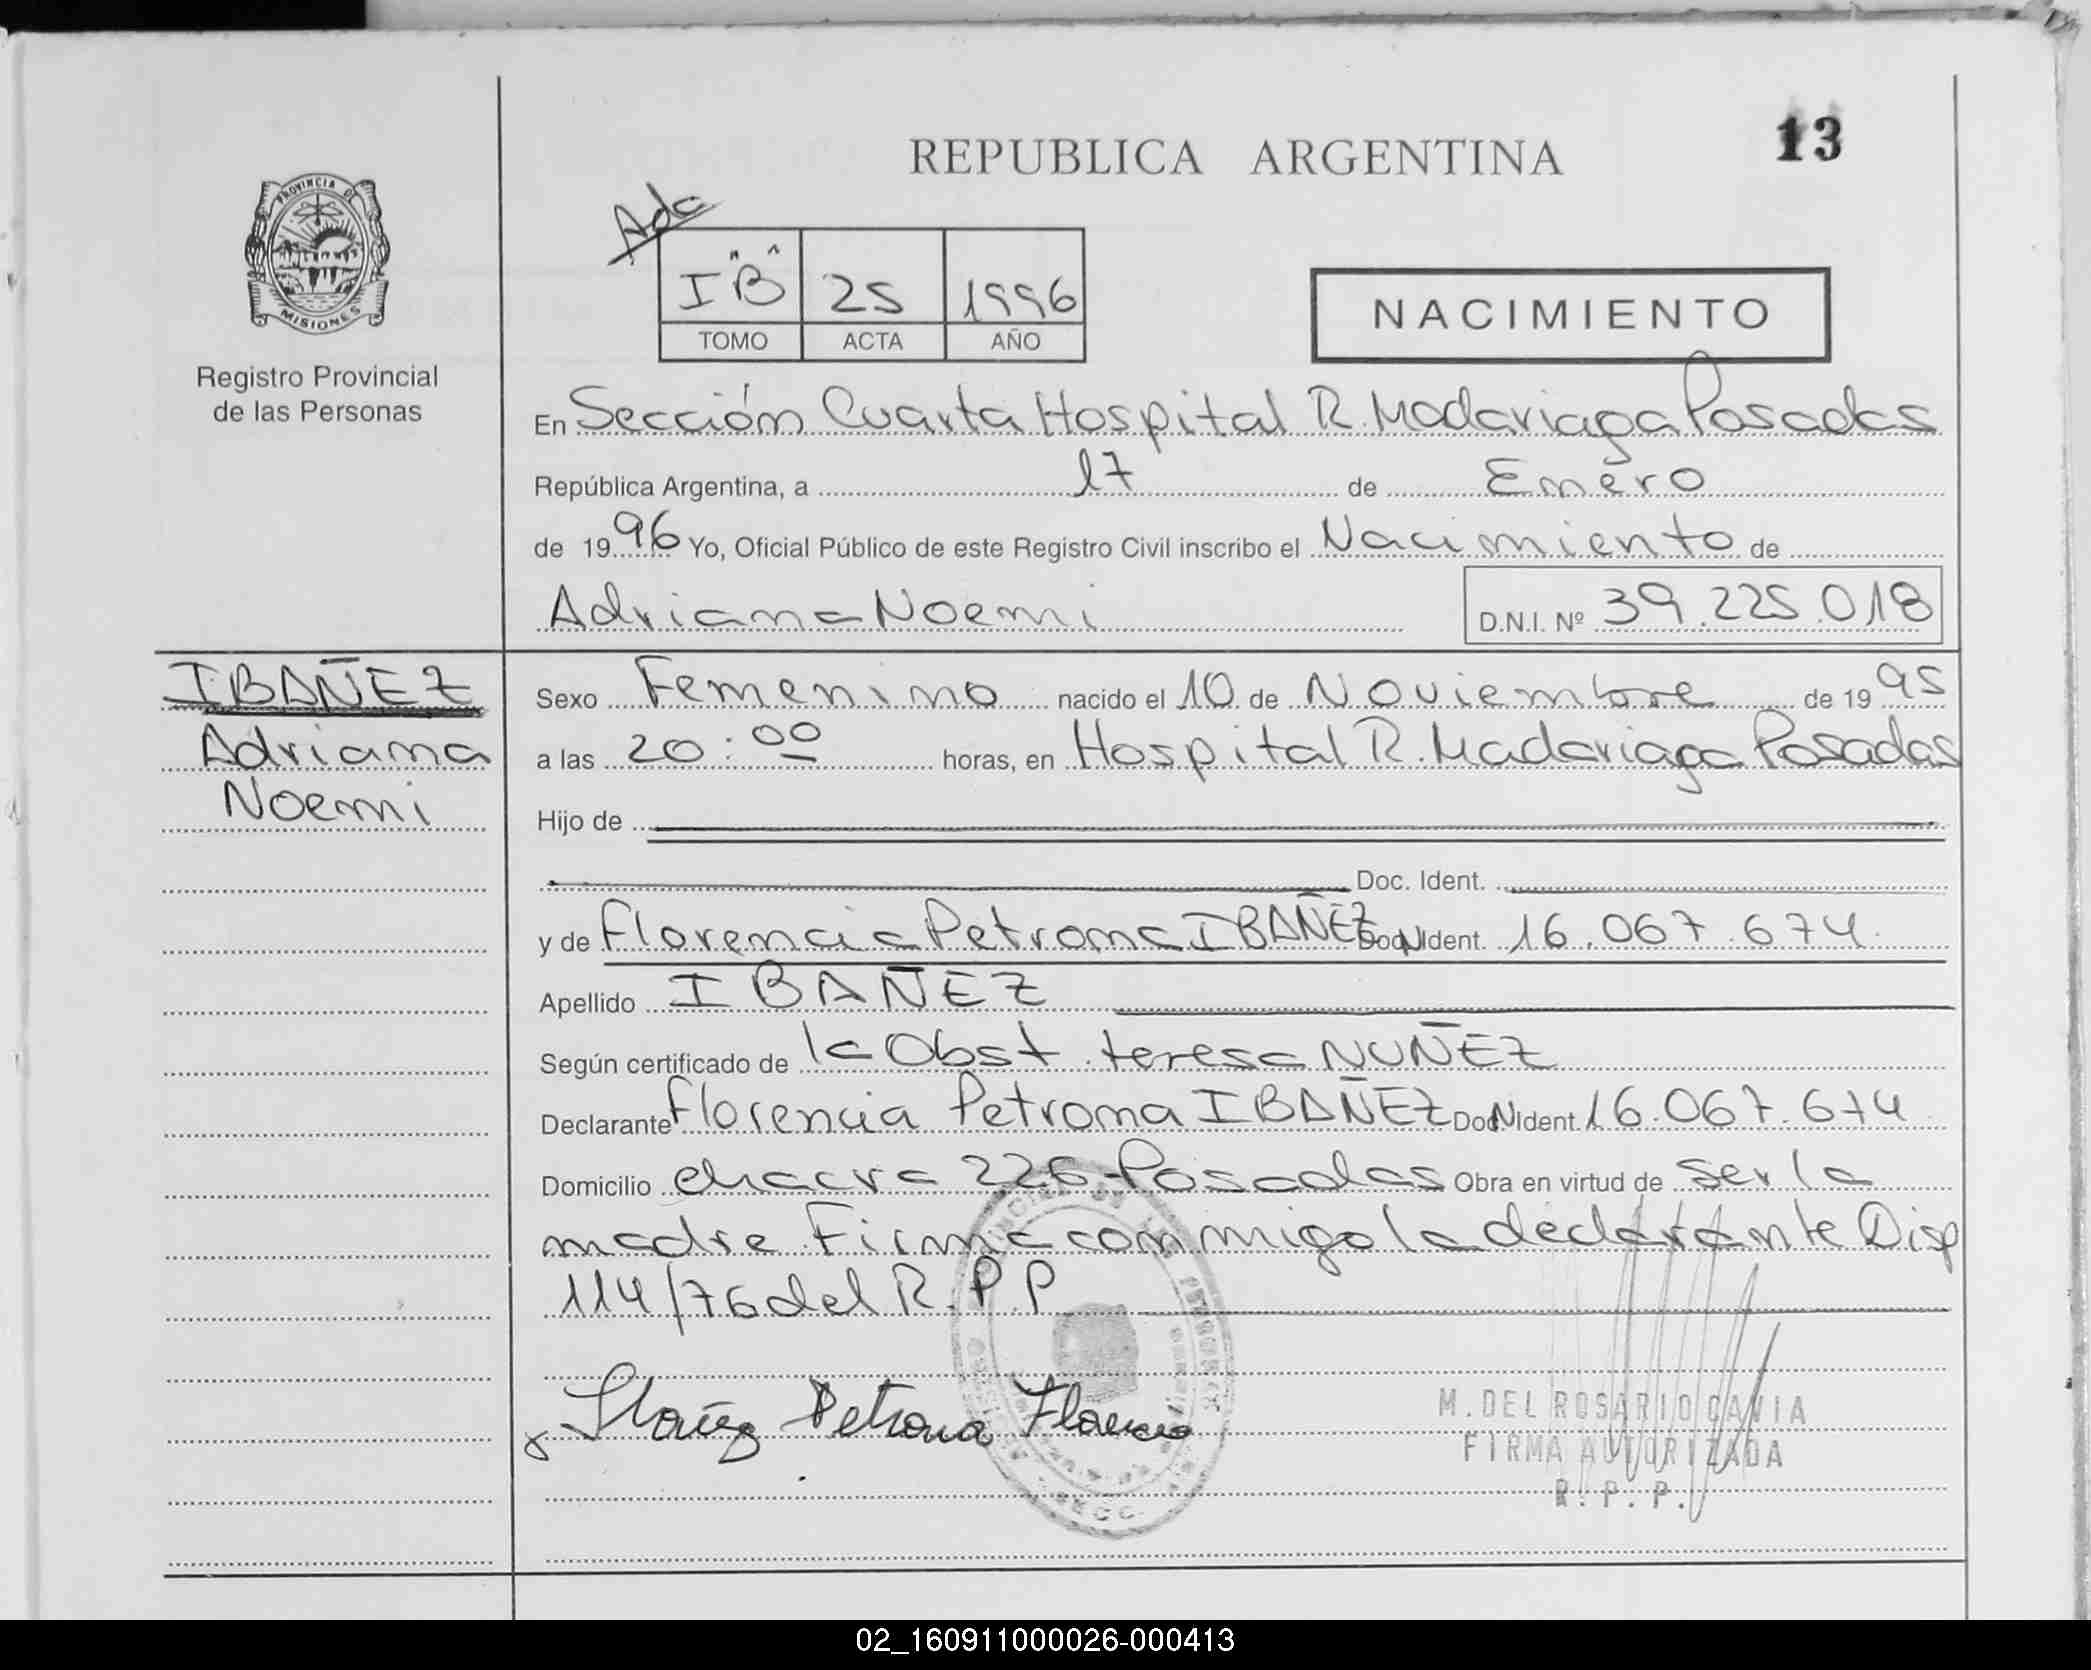 REPUBLICA ARGENTINA
13
PROVINCIA DE
MISIONES
Registro Provincial
de las Personas
Ada
I "B" 25 1996
TOMO ACTA AÑO
NACIMIENTO
En Sección Cuarta Hospital R. Madariaga Posadas
República Argentina, a 17 de Enero
de 1996 Yo, Oficial Público de este Registro Civil inscribo el Nacimiento de
Adriana Noemi D.N.I. Nº 39.225.018
IBAÑEZ
Adriana
Noemi
Sexo Femenino nacido el 10 de Noviembre de 1995
a las 20:00 horas, en Hospital R. Madariaga Posadas
Hijo de
Doc. Ident.
y de Florencia Petrona IBAÑEZ Doc. Ident. 16.067.674
Apellido IBAÑEZ
Según certificado de la Obst. teresa NUÑEZ
Declarante Florencia Petrona IBAÑEZ Doc. Ident. 16.067.674
Domicilio chacra 226 Posadas Obra en virtud de ser la
madre Firma conmigo la declarante Disp
114/76 del R.P.P
Ibañez Petrona Florencia
M. DEL ROSARIO CAVIA
FIRMA AUTORIZADA
R. P. P.
02_160911000026-000413